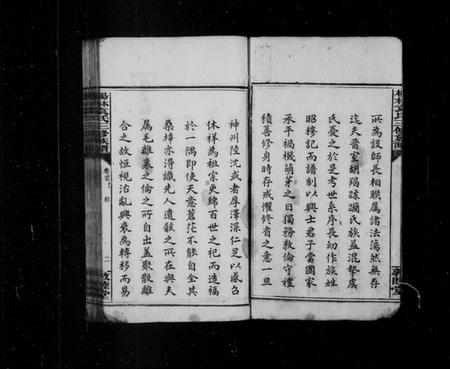 所為設師長相聯屬諸法蕩然無存
迄夫晉室胡羯蹂躪氏族益混摯虞
氏憂之於是考世系序長幼作族姓
昭穆記而譜制以興士君子當國家
承平禍機萌芽之日獨務敦倫守禮
積善修身時存戒懼修省之意一旦
神州陸沈或者厚澤深仁足以感召
休祥為祖宗更綿百世之祀而造福
於一隅即使天意蒼茫不能自全其
桑梓亦得識先人遺骸之所在與夫
屬毛離裏之倫之所自出蓋聚散離
合之故恒視治亂興衰為轉移而易
卷首 敘
二
敦睦堂